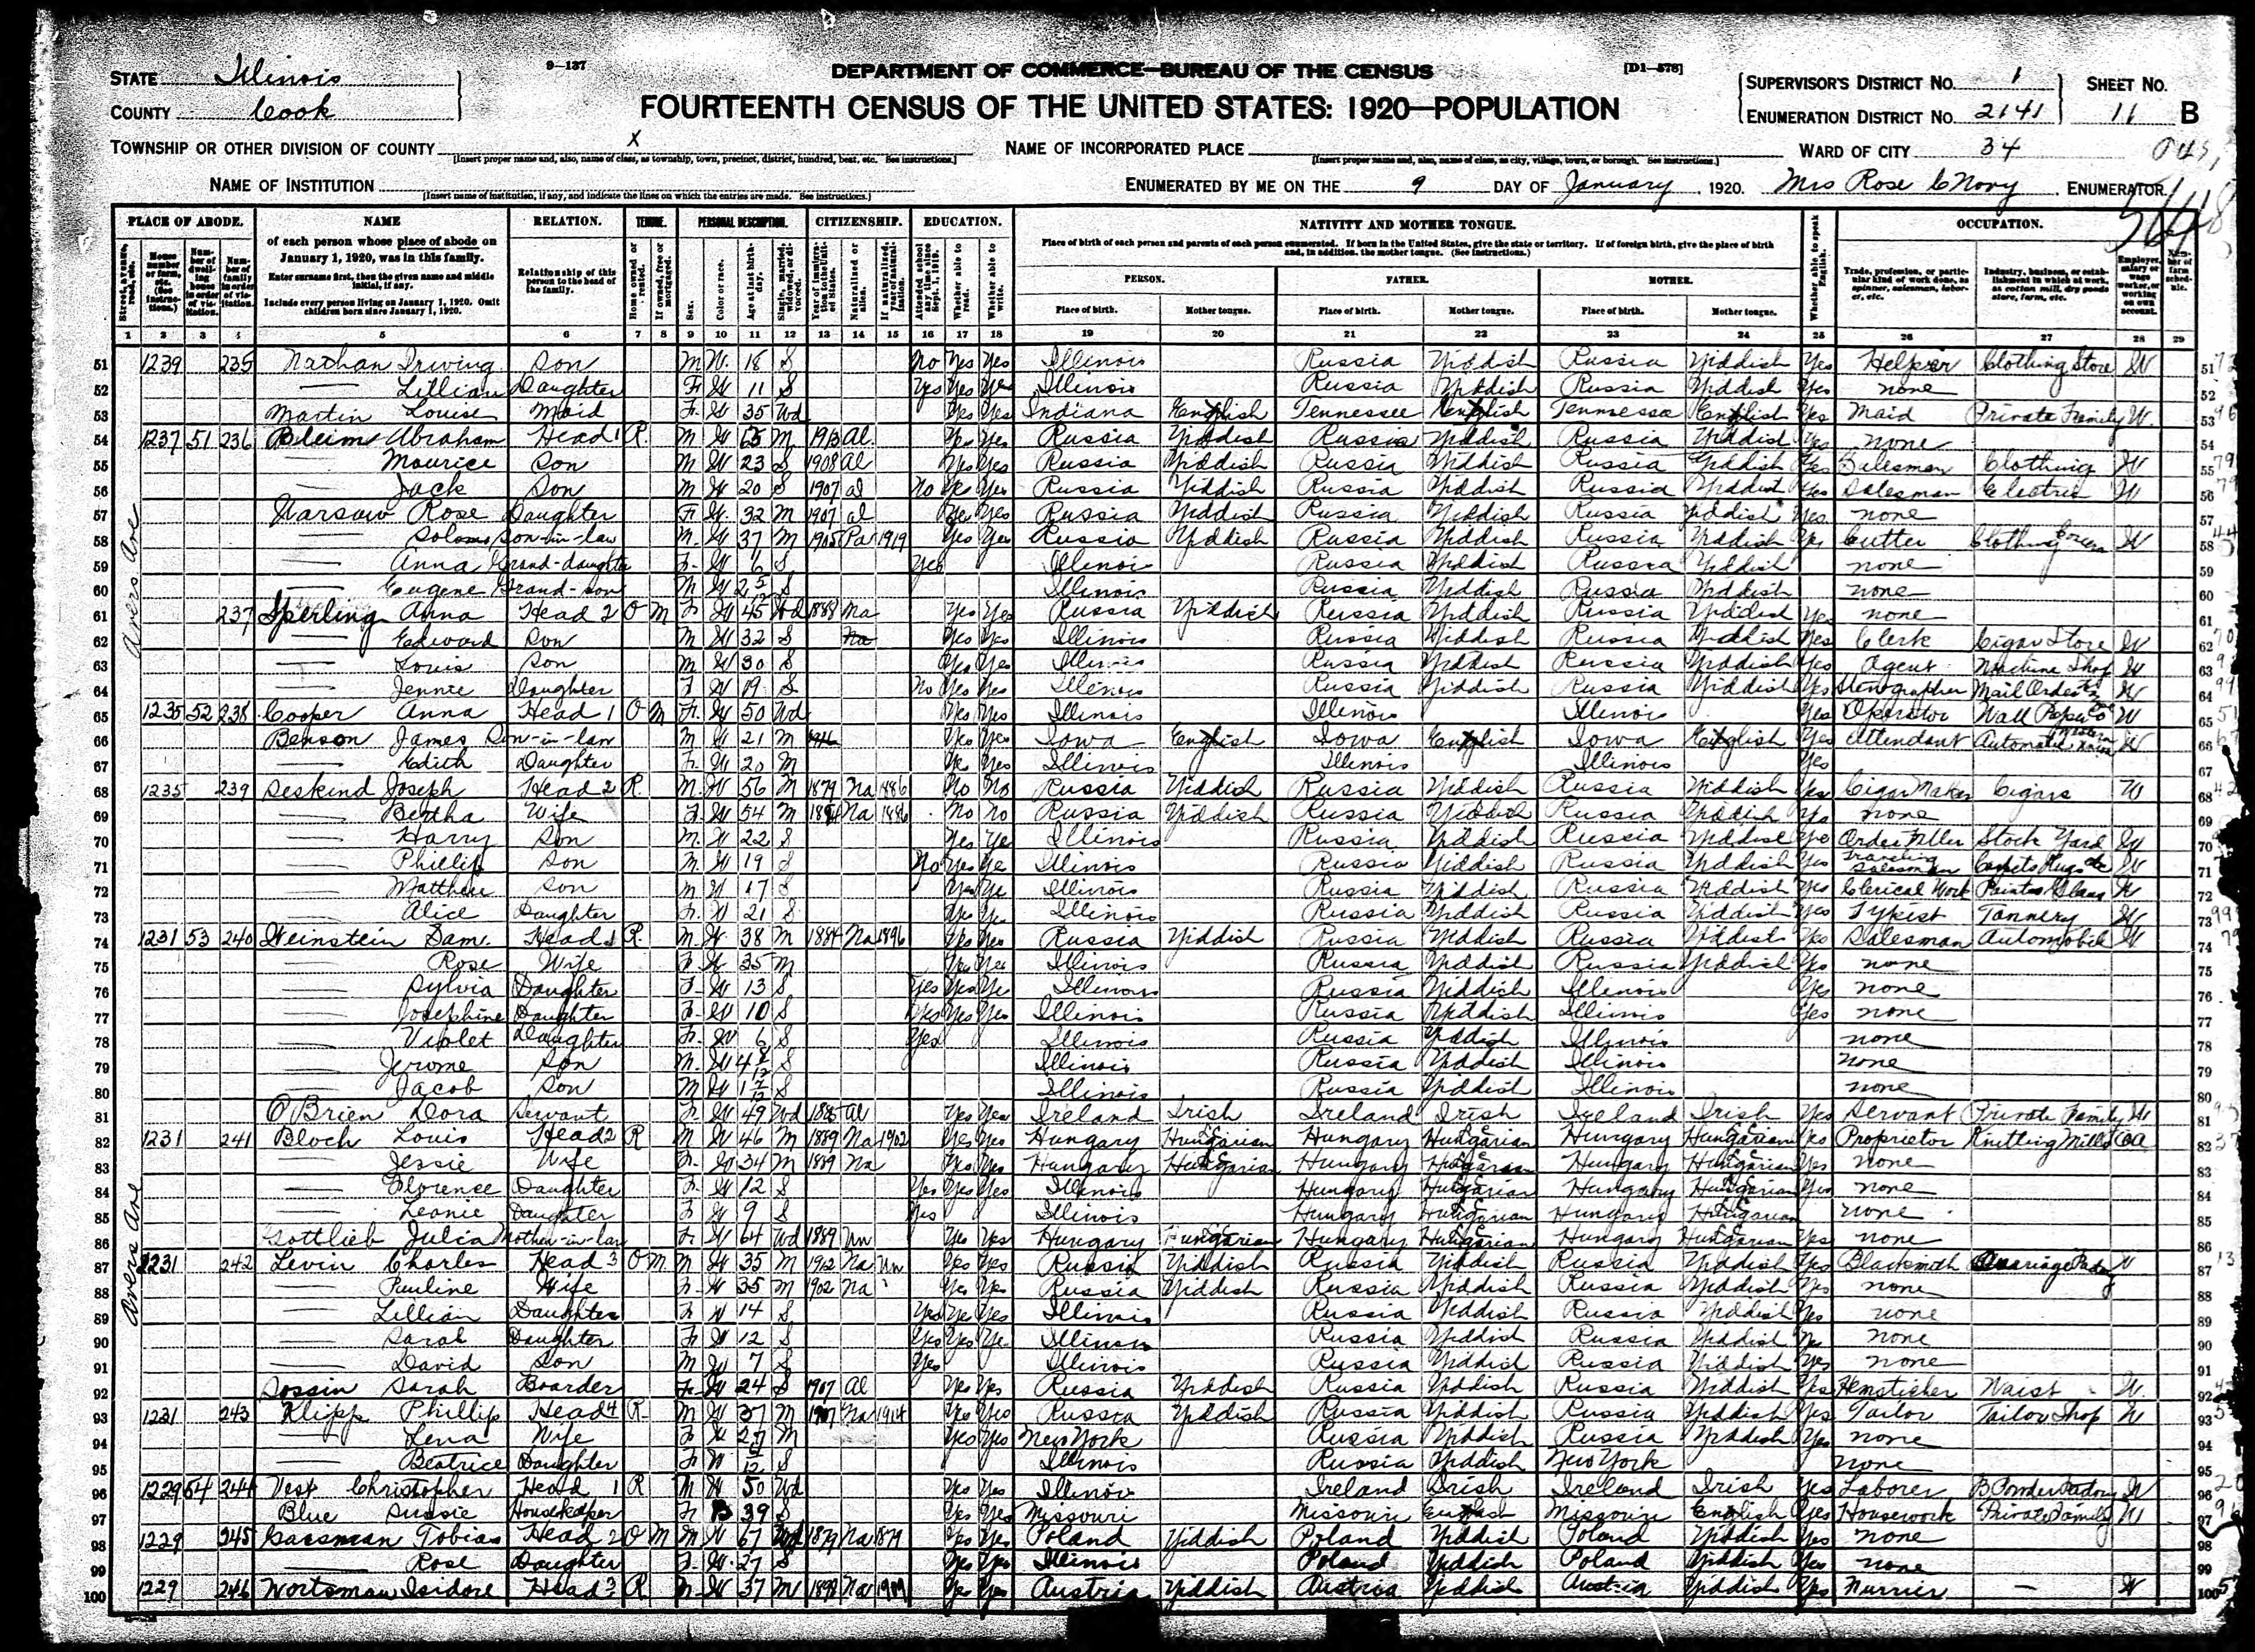 9—137
DEPARTMENT OF COMMERCE—BUREAU OF THE CENSUS
[D1—578]
STATE Illinois
COUNTY Cook
FOURTEENTH CENSUS OF THE UNITED STATES: 1920—POPULATION
SUPERVISOR'S DISTRICT No. 1
ENUMERATION DISTRICT No. 2141
SHEET No. 11 B
TOWNSHIP OR OTHER DIVISION OF COUNTY X
[Insert proper name and, also, name of class, as township, town, precinct, district, hundred, beat, etc. See instructions.]
NAME OF INCORPORATED PLACE
[Insert proper name and, also, name of class, as city, village, town, or borough. See instructions.]
WARD OF CITY 34
NAME OF INSTITUTION
[Insert name of institution, if any, and indicate the lines on which the entries are made. See instructions.]
ENUMERATED BY ME ON THE 9 DAY OF January, 1920. Mrs Rose ENUMERATOR
PLACE OF ABODE. NAME RELATION. TENURE. PERSONAL DESCRIPTION. CITIZENSHIP. EDUCATION. NATIVITY AND MOTHER TONGUE. OCCUPATION.
of each person whose place of abode on January 1, 1920, was in this family.
Enter surname first, then the given name and middle initial, if any.
Include every person living on January 1, 1920. Omit children born since January 1, 1920.
Relationship of this person to the head of the family.
Place of birth of each person and parents of each person enumerated. If born in the United States, give the state or territory. If of foreign birth, give the place of birth and, in addition, the mother tongue. (See instructions.)
PERSON. FATHER. MOTHER.
Place of birth. Mother tongue. Place of birth. Mother tongue. Place of birth. Mother tongue.
1 2 3 4 5 6 7 8 9 10 11 12 13 14 15 16 17 18 19 20 21 22 23 24 25 26 27 28 29
Avers Ave
51 1239 235 Nathan Irving Son M W 18 S No Yes Yes Illinois Russia Yiddish Russia Yiddish Yes Helper Clothing Store W 51
52 Lillian Daughter F W 11 S Yes Yes Yes Illinois Russia Yiddish Russia Yiddish Yes none 52
53 Martin Louise Maid F W 35 Wd Yes Yes Indiana English Tennessee English Tennessee English Yes Maid Private Family W 53
54 1237 51 236 Abraham Head 1 R M W 65 M 1913 Al Yes Yes Russia Yiddish Russia Yiddish Russia Yiddish Yes none 54
55 Maurice Son M W 23 S 1908 Al Yes Yes Russia Yiddish Russia Yiddish Russia Yiddish Yes Salesman Clothing W 55
56 Jack Son M W 20 S 1907 al No Yes Yes Russia Yiddish Russia Yiddish Russia Yiddish Yes Salesman Electric W 56
57 Warsaw Rose Daughter F W 32 M 1907 al Yes Yes Russia Yiddish Russia Yiddish Russia Yiddish Yes none 57
58 Solomo Son-in-law M W 37 M 1905 Pa 1919 Yes Yes Russia Yiddish Russia Yiddish Russia Yiddish Yes Cutter Clothing W 58
59 Anna Grand-daughter F W 6 S Yes Illinois Russia Yiddish Russia Yiddish none 59
60 Eugene Grand-son M W S Illinois Russia Yiddish Russia Yiddish none 60
61 237 Sperling Anna Head 2 O M F W 45 Wd 1888 Na Yes Yes Russia Yiddish Russia Yiddish Russia Yiddish Yes none 61
62 Edward Son M W 32 S Na Yes Yes Illinois Russia Yiddish Russia Yiddish Yes Clerk Cigar Store W 62
63 Louis Son M W 30 S Yes Yes Illinois Russia Yiddish Russia Yiddish Yes Agent Machine Shop W 63
64 Jennie Daughter F W 19 S No Yes Yes Illinois Russia Yiddish Russia Yiddish Yes Stenographer Mail Order W 64
65 1235 52 238 Cooper Anna Head 1 O M F W 50 Wd Yes Yes Illinois Illinois Illinois Yes Operator Wall Paper Co W 65
66 Benson James Son-in-law M W 21 M Yes Yes Iowa English Iowa English Iowa English Yes Attendant W 66
67 Edith Daughter F W 20 M Yes Yes Illinois Illinois Illinois Yes 67
68 1235 239 Seskind Joseph Head 2 R M W 56 M 1879 Na 1886 No No Russia Yiddish Russia Yiddish Russia Yiddish Yes Cigar Maker Cigars W 68
69 Bertha Wife F W 54 M Na 1886 No No Russia Yiddish Russia Yiddish Russia Yiddish none 69
70 Harry Son M W 22 S Yes Yes Illinois Russia Yiddish Russia Yiddish Yes Order Filler Stock Yard W 70
71 Phillip Son M W 19 S No Yes Yes Illinois Russia Yiddish Russia Yiddish Yes Traveling Salesman Carpets Rugs etc W 71
72 Matthew Son M W 17 S Yes Yes Illinois Russia Yiddish Russia Yiddish Yes Clerical Work Paints & Glass W 72
73 Alice Daughter F W 21 S Yes Yes Illinois Russia Yiddish Russia Yiddish Yes Typist Tannery W 73
74 1231 53 240 Weinstein Sam. Head 1 R M W 38 M 1884 Na 1896 Yes Yes Russia Yiddish Russia Yiddish Russia Yiddish Yes Salesman Automobile W 74
75 Rose Wife F W 35 M Yes Yes Illinois Russia Yiddish Russia Yiddish Yes none 75
76 Sylvia Daughter F W 13 S Yes Yes Yes Illinois Russia Yiddish Illinois Yes none 76
77 Josephine Daughter F W 10 S Yes Yes Yes Illinois Russia Yiddish Illinois Yes none 77
78 Violet Daughter F W 6 S Yes Illinois Russia Yiddish Illinois none 78
79 Jerome Son M W S Illinois Russia Yiddish Illinois none 79
80 Jacob Son M W S Illinois Russia Yiddish Illinois none 80
81 O'Brien Dora Servant F W 49 Wd 1885 al Yes Yes Ireland Irish Ireland Irish Ireland Irish Yes Servant Private Family W 81
82 1231 241 Bloch Louis Head 2 R M W 46 M 1889 Na 1902 Yes Yes Hungary Hungarian Hungary Hungarian Hungary Hungarian Yes Proprietor Knitting Mills OA 82
83 Jessie Wife F W 34 M 1889 Na Yes Yes Hungary Hungarian Hungary Hungarian Hungary Hungarian Yes none 83
84 Florence Daughter F W 12 S Yes Yes Yes Illinois Hungary Hungarian Hungary Hungarian Yes none 84
85 Leonie Daughter F W 9 S Yes Illinois Hungary Hungarian Hungary Hungarian none 85
86 Gottlieb Julia Mother-in-law F W 64 Wd 1889 Un Yes Yes Hungary Hungarian Hungary Hungarian Hungary Hungarian Yes none 86
Avers Ave
87 1231 242 Levin Charles Head 3 O M M W 35 M 1902 Na Un Yes Yes Russia Yiddish Russia Yiddish Russia Yiddish Yes Blacksmith Carriage Factory W 87
88 Pauline Wife F W 35 M 1902 Na Yes Yes Russia Yiddish Russia Yiddish Russia Yiddish Yes none 88
89 Lillian Daughter F W 14 S Yes Yes Yes Illinois Russia Yiddish Russia Yiddish Yes none 89
90 Sarah Daughter F W 12 S Yes Yes Yes Illinois Russia Yiddish Russia Yiddish Yes none 90
91 David Son M W 7 S Yes Illinois Russia Yiddish Russia Yiddish Yes none 91
92 Sossin Sarah Boarder F W 24 S 1907 Al Yes Yes Russia Yiddish Russia Yiddish Russia Yiddish Yes Hemsticher Waist W 92
93 1231 243 Klipp Phillip Head 4 R M W 37 M 1907 Na 1914 Yes Yes Russia Yiddish Russia Yiddish Russia Yiddish Yes Tailor Tailor Shop W 93
94 Lena Wife F W 27 M Yes Yes New York Russia Yiddish Russia Yiddish Yes none 94
95 Beatrice Daughter F W S Illinois Russia Yiddish New York none 95
96 1229 54 244 Vest Christopher Head 1 R M W 50 Wd Yes Yes Illinois Ireland Irish Ireland Irish Yes Laborer B Powder Factory W 96
97 Blue Sussie Housekeeper F B 39 S Yes Yes Missouri Missouri English Missouri English Yes Housework Private Family W 97
98 1229 245 Tobias Head 2 O M M W 67 Wd 1879 Na 1879 Yes Yes Poland Yiddish Poland Yiddish Poland Yiddish Yes none 98
99 Rose Daughter F W 27 S Yes Yes Illinois Poland Yiddish Poland Yiddish Yes none 99
100 1229 246 Wortsman Isidore Head 3 R M W 37 M Na Yes Yes Austria Yiddish Austria Yiddish Austria Yiddish Yes Furrier — W 100